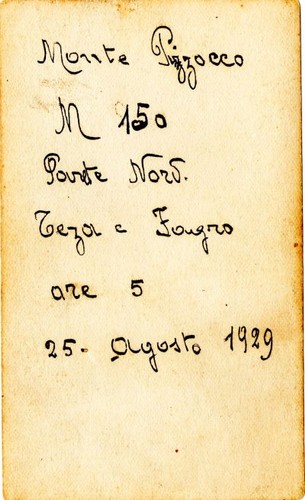 Monte Pizzocco
M 150
Parte Nord.
Teza e Fagro
ore 5
25 - Agosto 1929